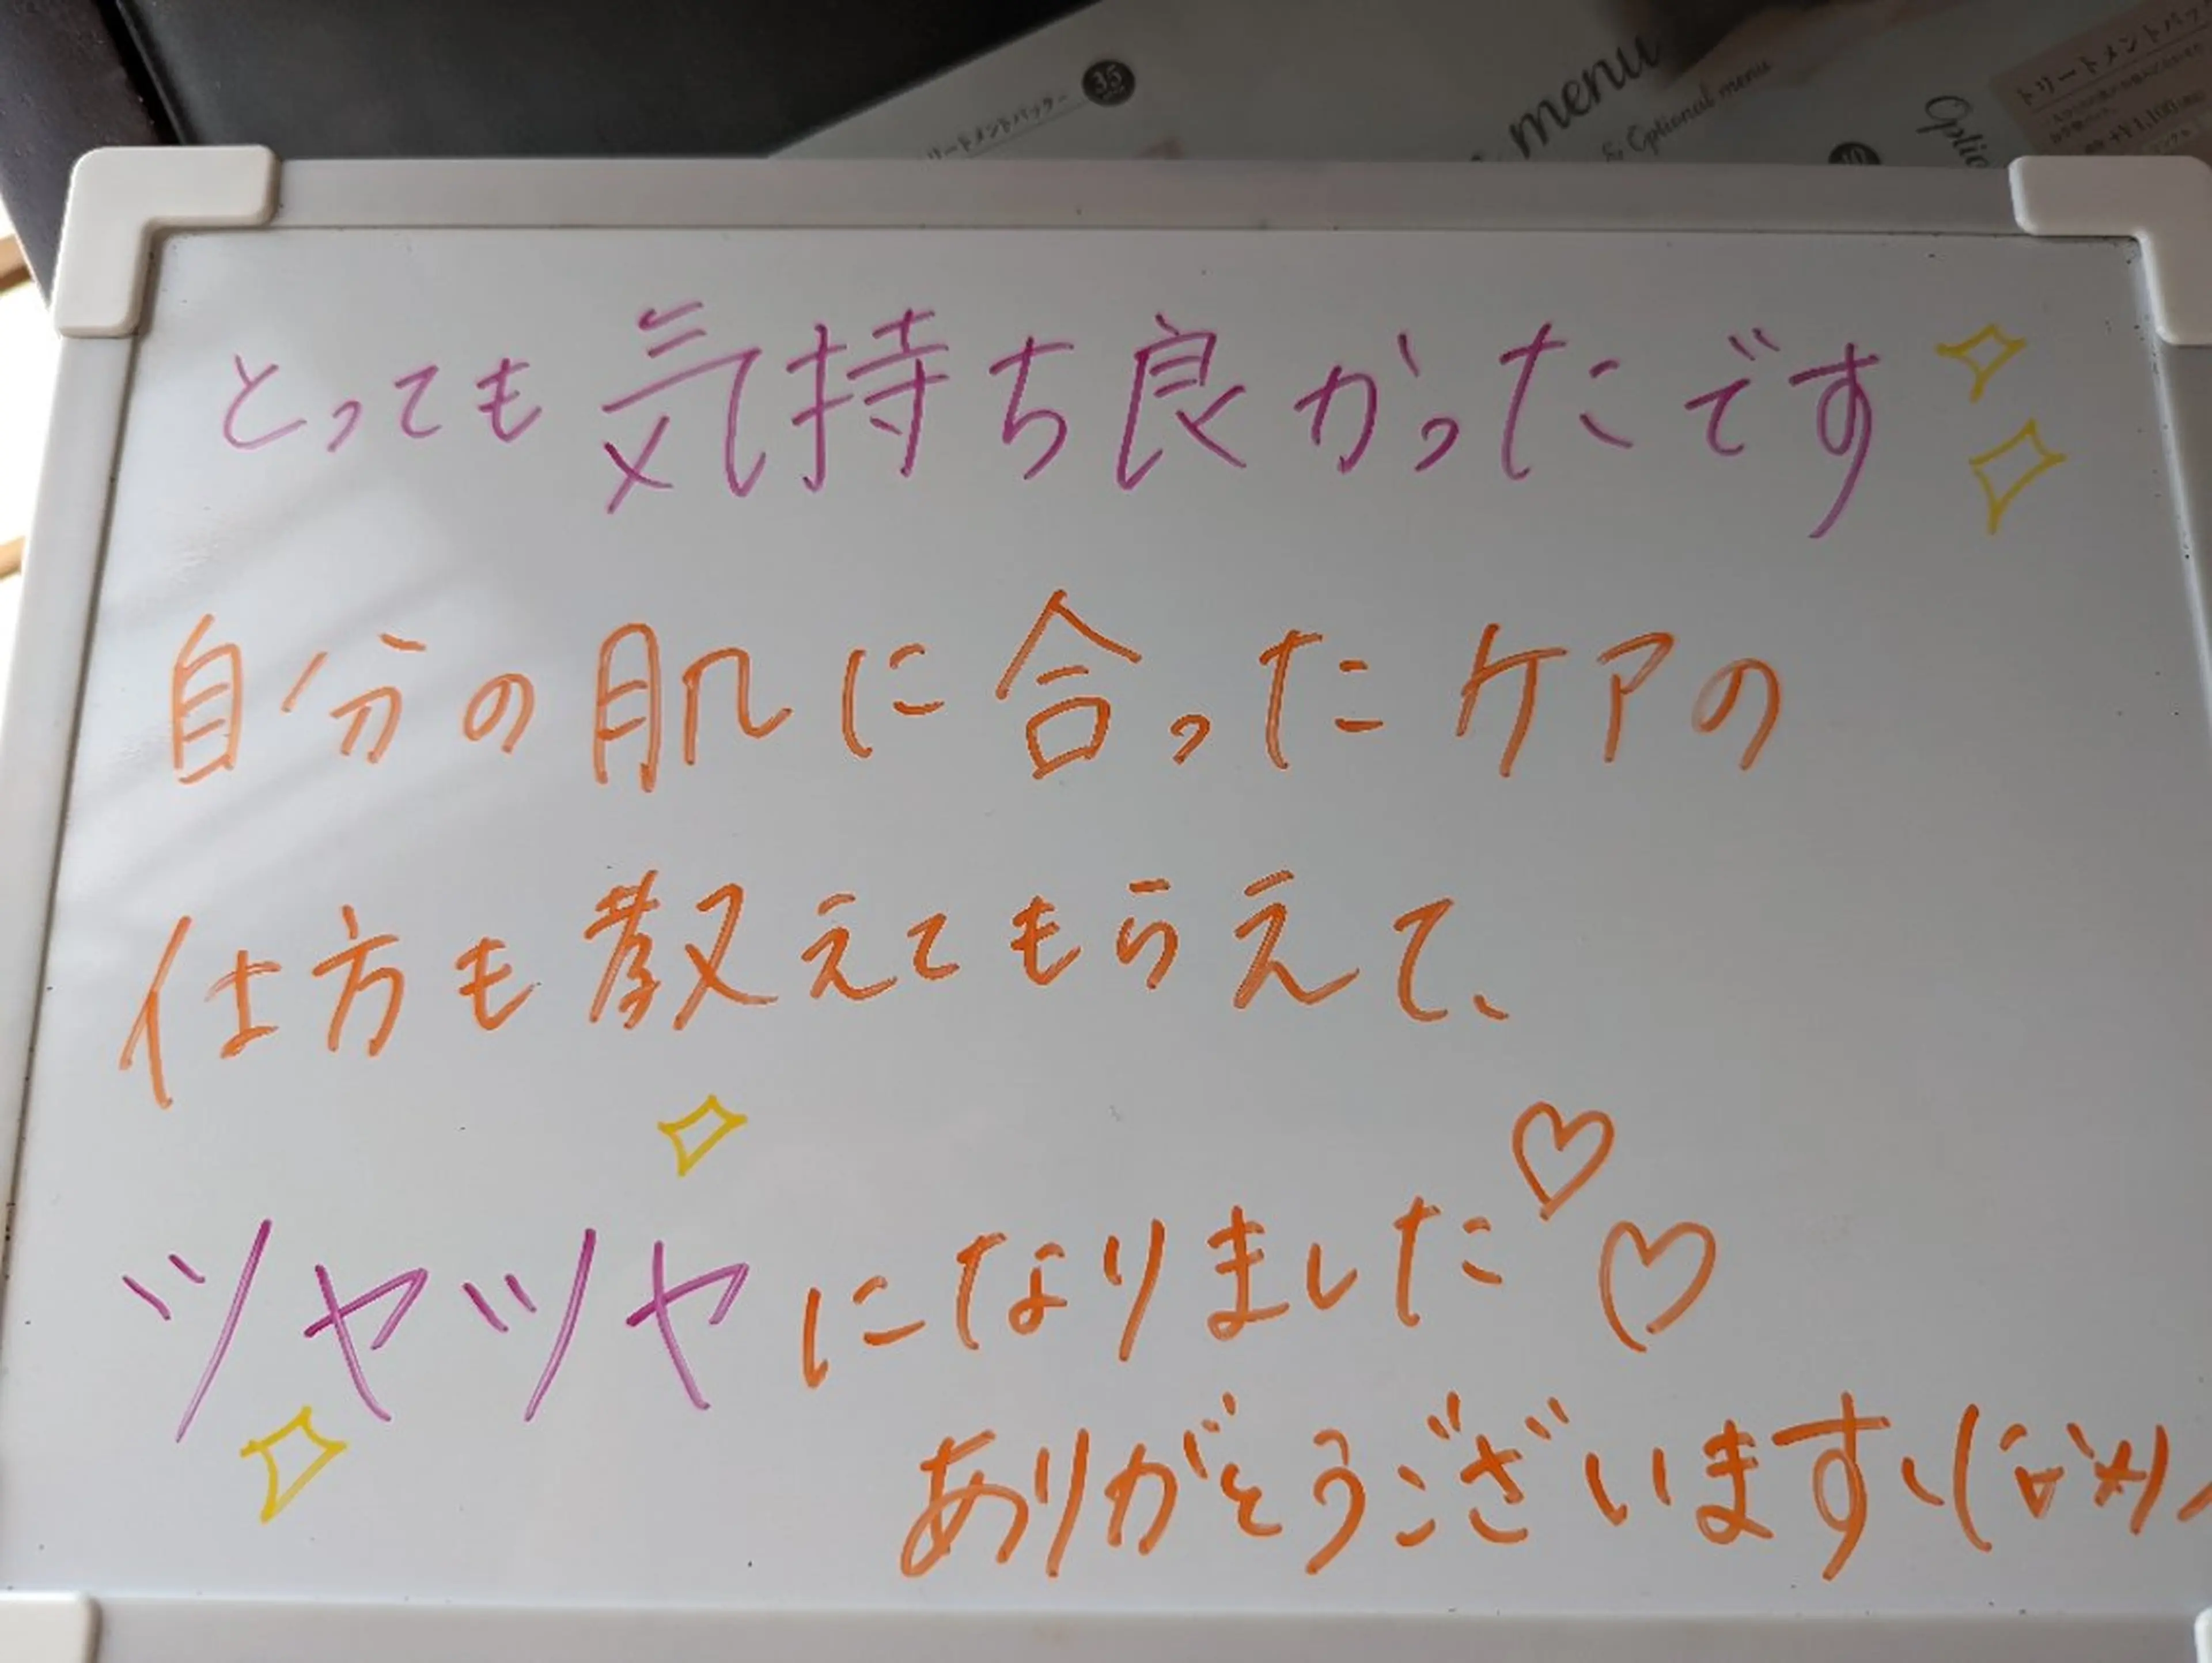 トリートメントパッター 35
menu
& Optional menu
トリートメントパッ
とっても気持ち良かったです
自分の肌に合ったケアの
仕方も教えてもらえて、
ツヤツヤになりました♡♡
ありがとうございます